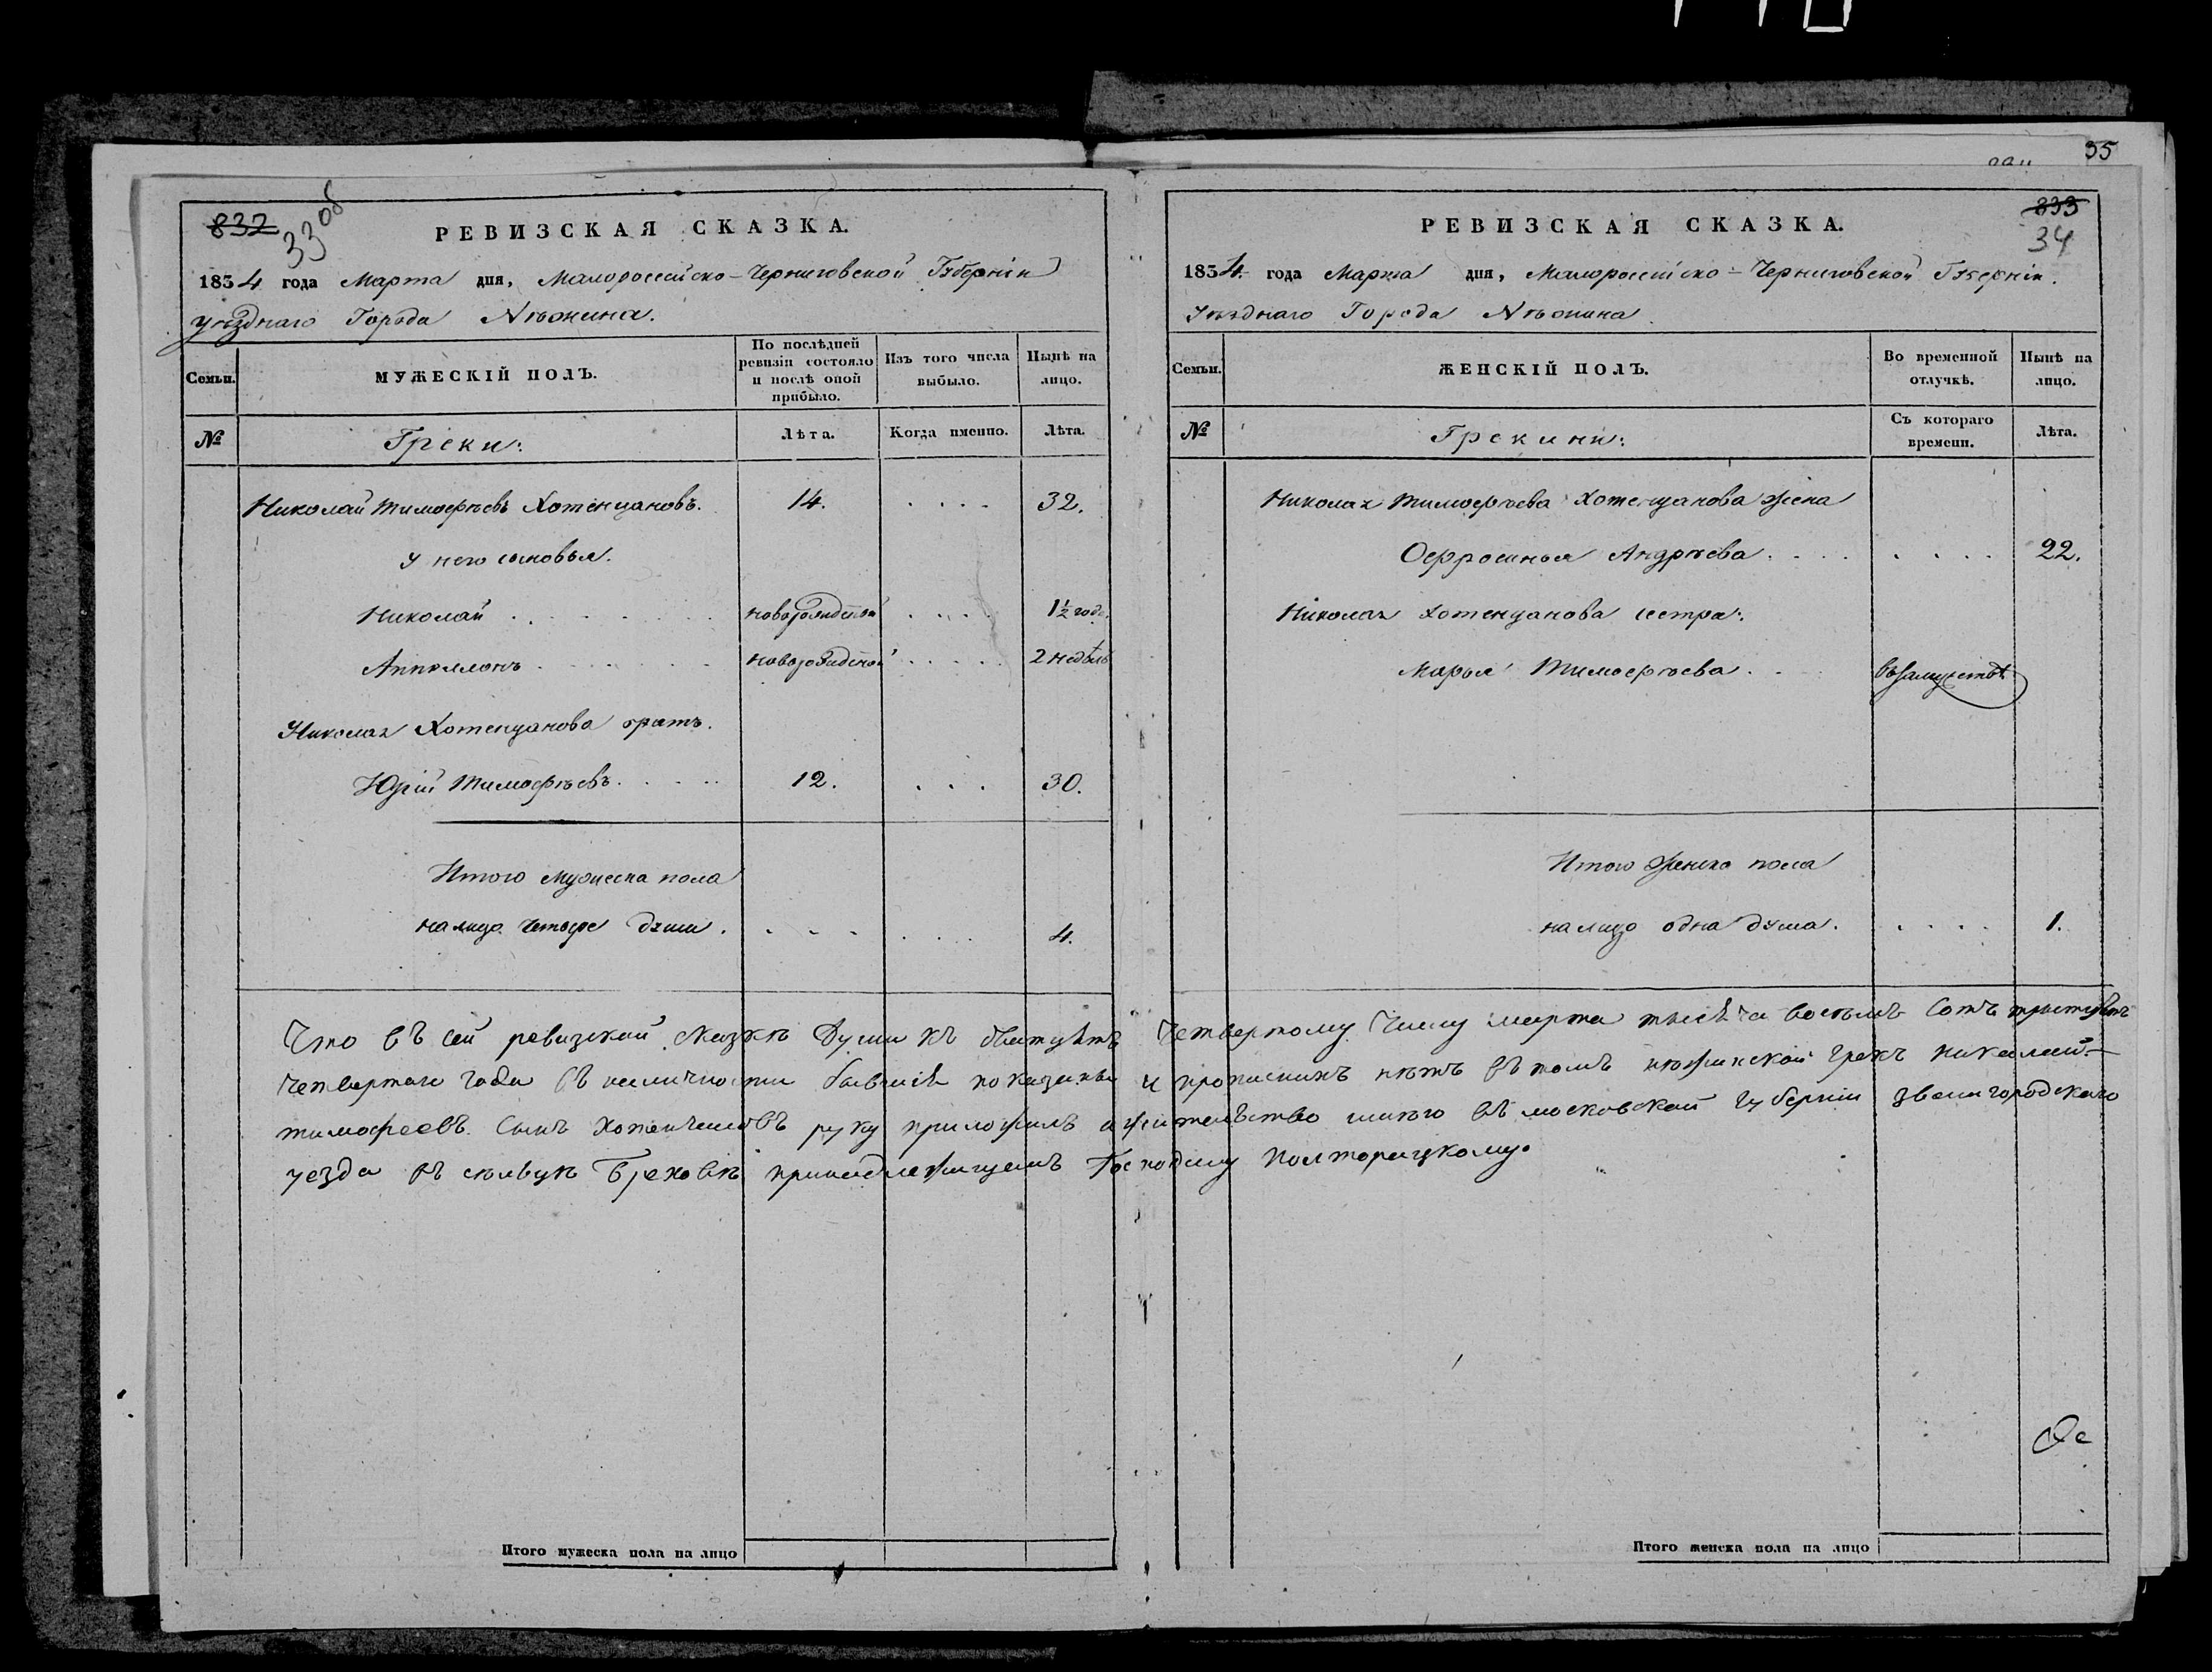 55
832
33 об
РЕВИЗСКАЯ СКАЗКА.
1834 года Марта дня, Малороссійско-Черниговской Губерніи
уѣзднаго Города Нѣжина.
Семьи.
МУЖЕСКІЙ ПОЛЪ.
По послѣдней ревизіи состояло и послѣ оной прибыло.
Изъ того числа выбыло.
Нынѣ на лицо.
№
Греки:
Лѣта.
Когда именно.
Лѣта.
Николай Тимофѣевъ Хотенцановъ. 14. . . . . 32.
у него сыновья.
Николай . . . . . . новорожденой . . . . 1½ года.
Апполлонъ . . . . . новорожденой . . . . . 2 недѣль
Николая Хотенцанова братъ.
Юрій Тимофѣевъ . . . . . 12. . . . 30.
Итого мужеска пола
на лицо четыре души . . . . . . . 4.
833
34
РЕВИЗСКАЯ СКАЗКА.
1834 года Марта дня, Малороссійско-Черниговской Губерніи.
Уѣзднаго Города Нѣжина.
Семьи.
ЖЕНСКІЙ ПОЛЪ.
Во временной отлучкѣ.
Нынѣ на лицо.
№
Грекини:
Съ котораго времени.
Лѣта.
Николая Тимофѣева Хотенцанова жена
Ефросинья Андрѣева . . . . . . . . 22.
Николая Хотенцанова сестра:
Марья Тимофѣева . . . въ замужествѣ
Итого женска пола
на лицо одна душа. . . . . 1.
Что въ сей ревизской сказкѣ души къ дватцеть четвертому числу марта тысяча восемь сотъ тритцеть
четвертаго года въ наличности бывшія показаны и прописнихъ нѣтъ въ томъ нѣжинской грекъ николай
тимофеевъ сынъ хотенчановъ руку приложилъ а жительство имѣю въ московской губерніи звенигородскаго
уезда въ селцѣ Бреховѣ принадлежащемъ господину полторацкому.
Итого мужеска пола на лицо
Итого женска пола на лицо